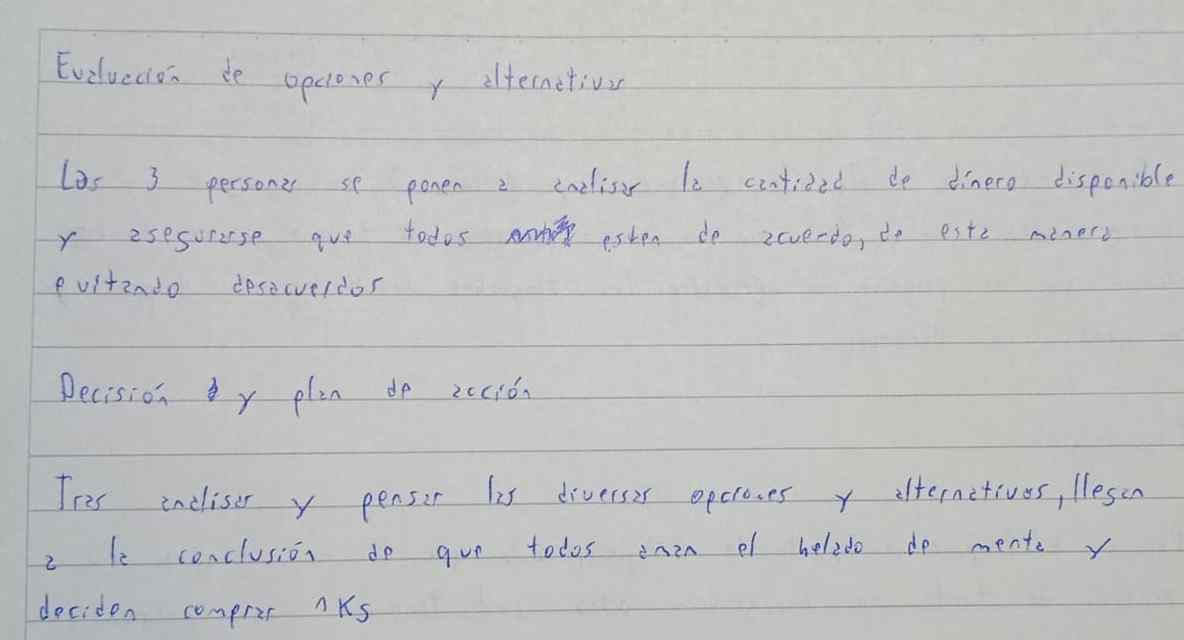 Evaluación de opciones y alternativas
Las 3 personas se ponen a analisar la cantidad de dinero disponible
y asegurarse que todos esten de acuerdo, de esta manera
evitando desacuerdos
Decisión y plan de acción
Tras analisar y pensar las diversas opciones y alternativas, llegan
a la conclusión de que todos aman el helado de menta y
deciden comprar 1 Kg